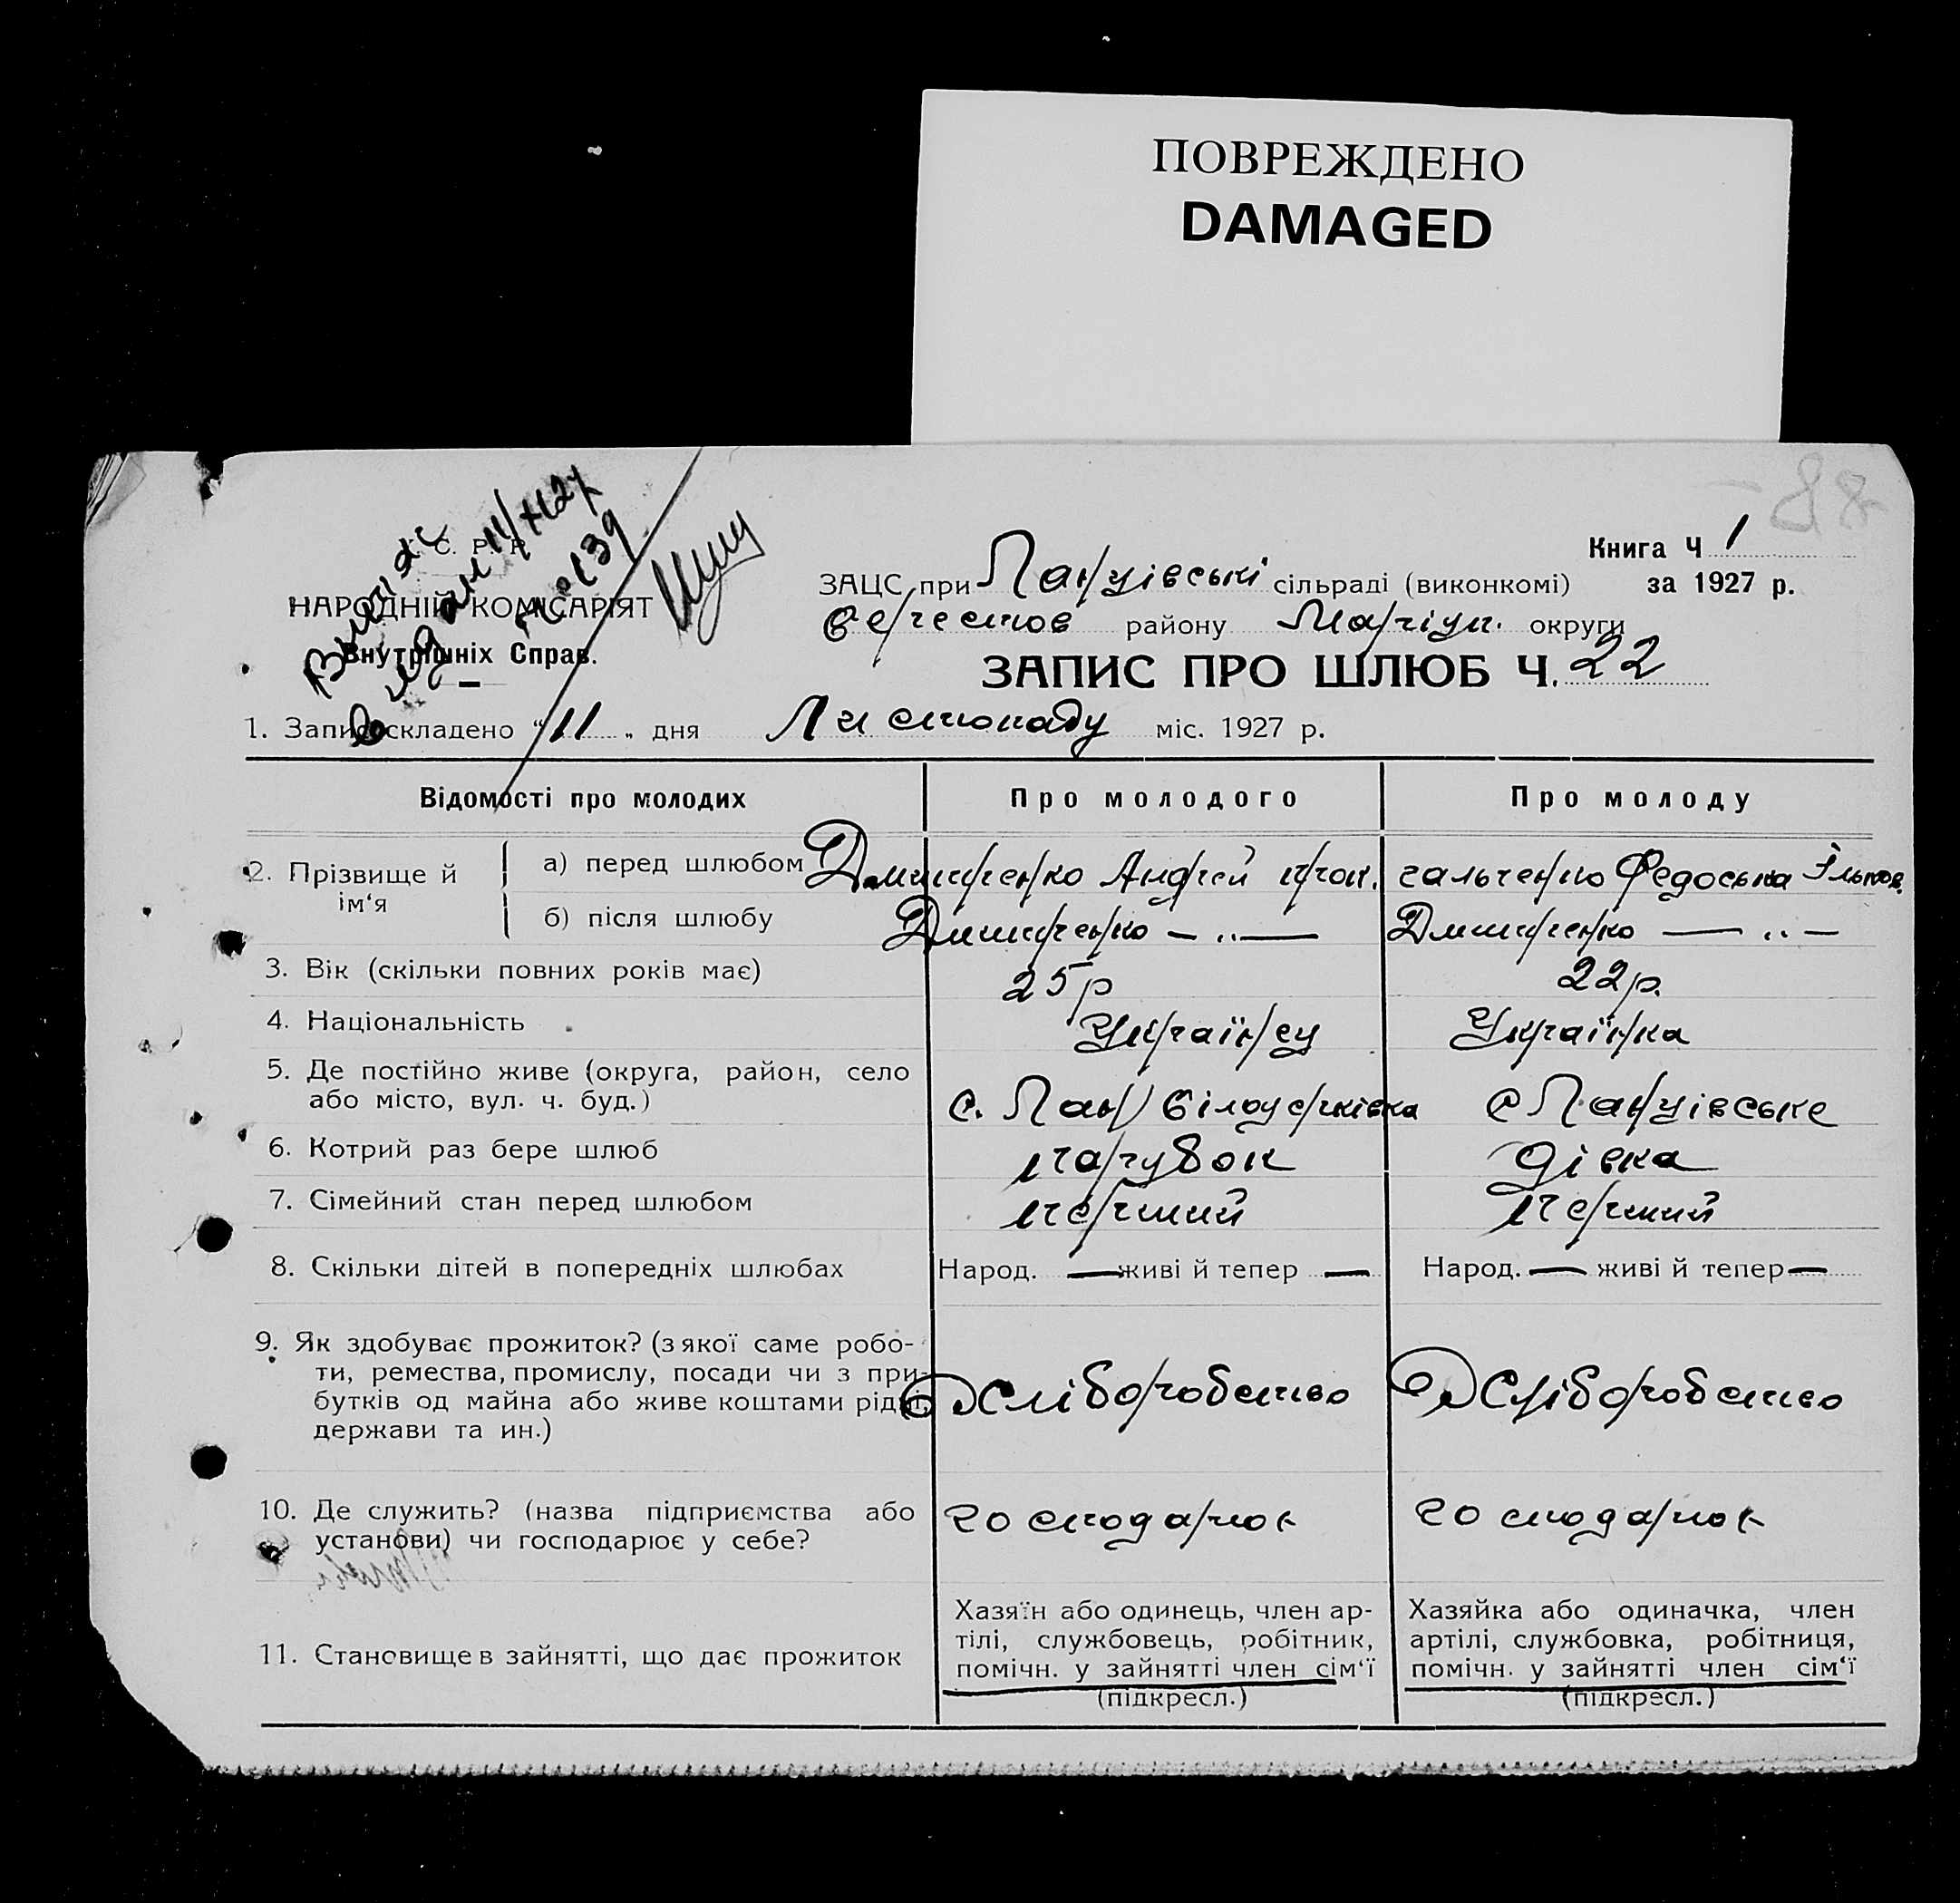 ПОВРЕЖДЕНО
DAMAGED
88
С. Р. Р.
НАРОДНІЙ КОМІСАРІЯТ
Внутрішніх Справ.
Витяг
видан 11/XI 27
Книга Ч 1
ЗАЦС при Ланцівські сільраді (виконкомі) за 1927 р.
району Маріуп. округи
ЗАПИС ПРО ШЛЮБ Ч. 22
1. Запис складено "11" дня Листопаду міс. 1927 р.
Відомості про молодих Про молодого Про молоду
2. Прізвище й ім‘я а) перед шлюбом Дмитренко Андрей Федоська
б) після шлюбу Дмитренко — „ — Дмитренко — „ —
3. Вік (скільки повних років має) 25 р 22 р.
4. Національність Українец Українка
5. Де постійно живе (округа, район, село
або місто, вул. ч. буд.) с. с Ланцівське
6. Котрий раз бере шлюб парубок дівка
7. Сімейний стан перед шлюбом перший перший
8. Скільки дітей в попередніх шлюбах Народ. — живі й тепер — Народ. — живі й тепер —
9. Як здобуває прожиток? (з якої саме робо-
ти, ремества, промислу, посади чи з при-
бутків од майна або живе коштами рідні,
держави та ин.)
Хліборобство Хліборобство
10. Де служить? (назва підприємства або
установи) чи господарює у себе?
господарює господарює
11. Становище в зайнятті, що дає прожиток
Хазяїн або одинець, член ар-
тілі, службовець, робітник,
помічн. у зайнятті член сім‘ї
(підкресл.)
Хазяйка або одиначка, член
артілі, службовка, робітниця,
помічн. у зайнятті член сім‘ї
(підкресл.)